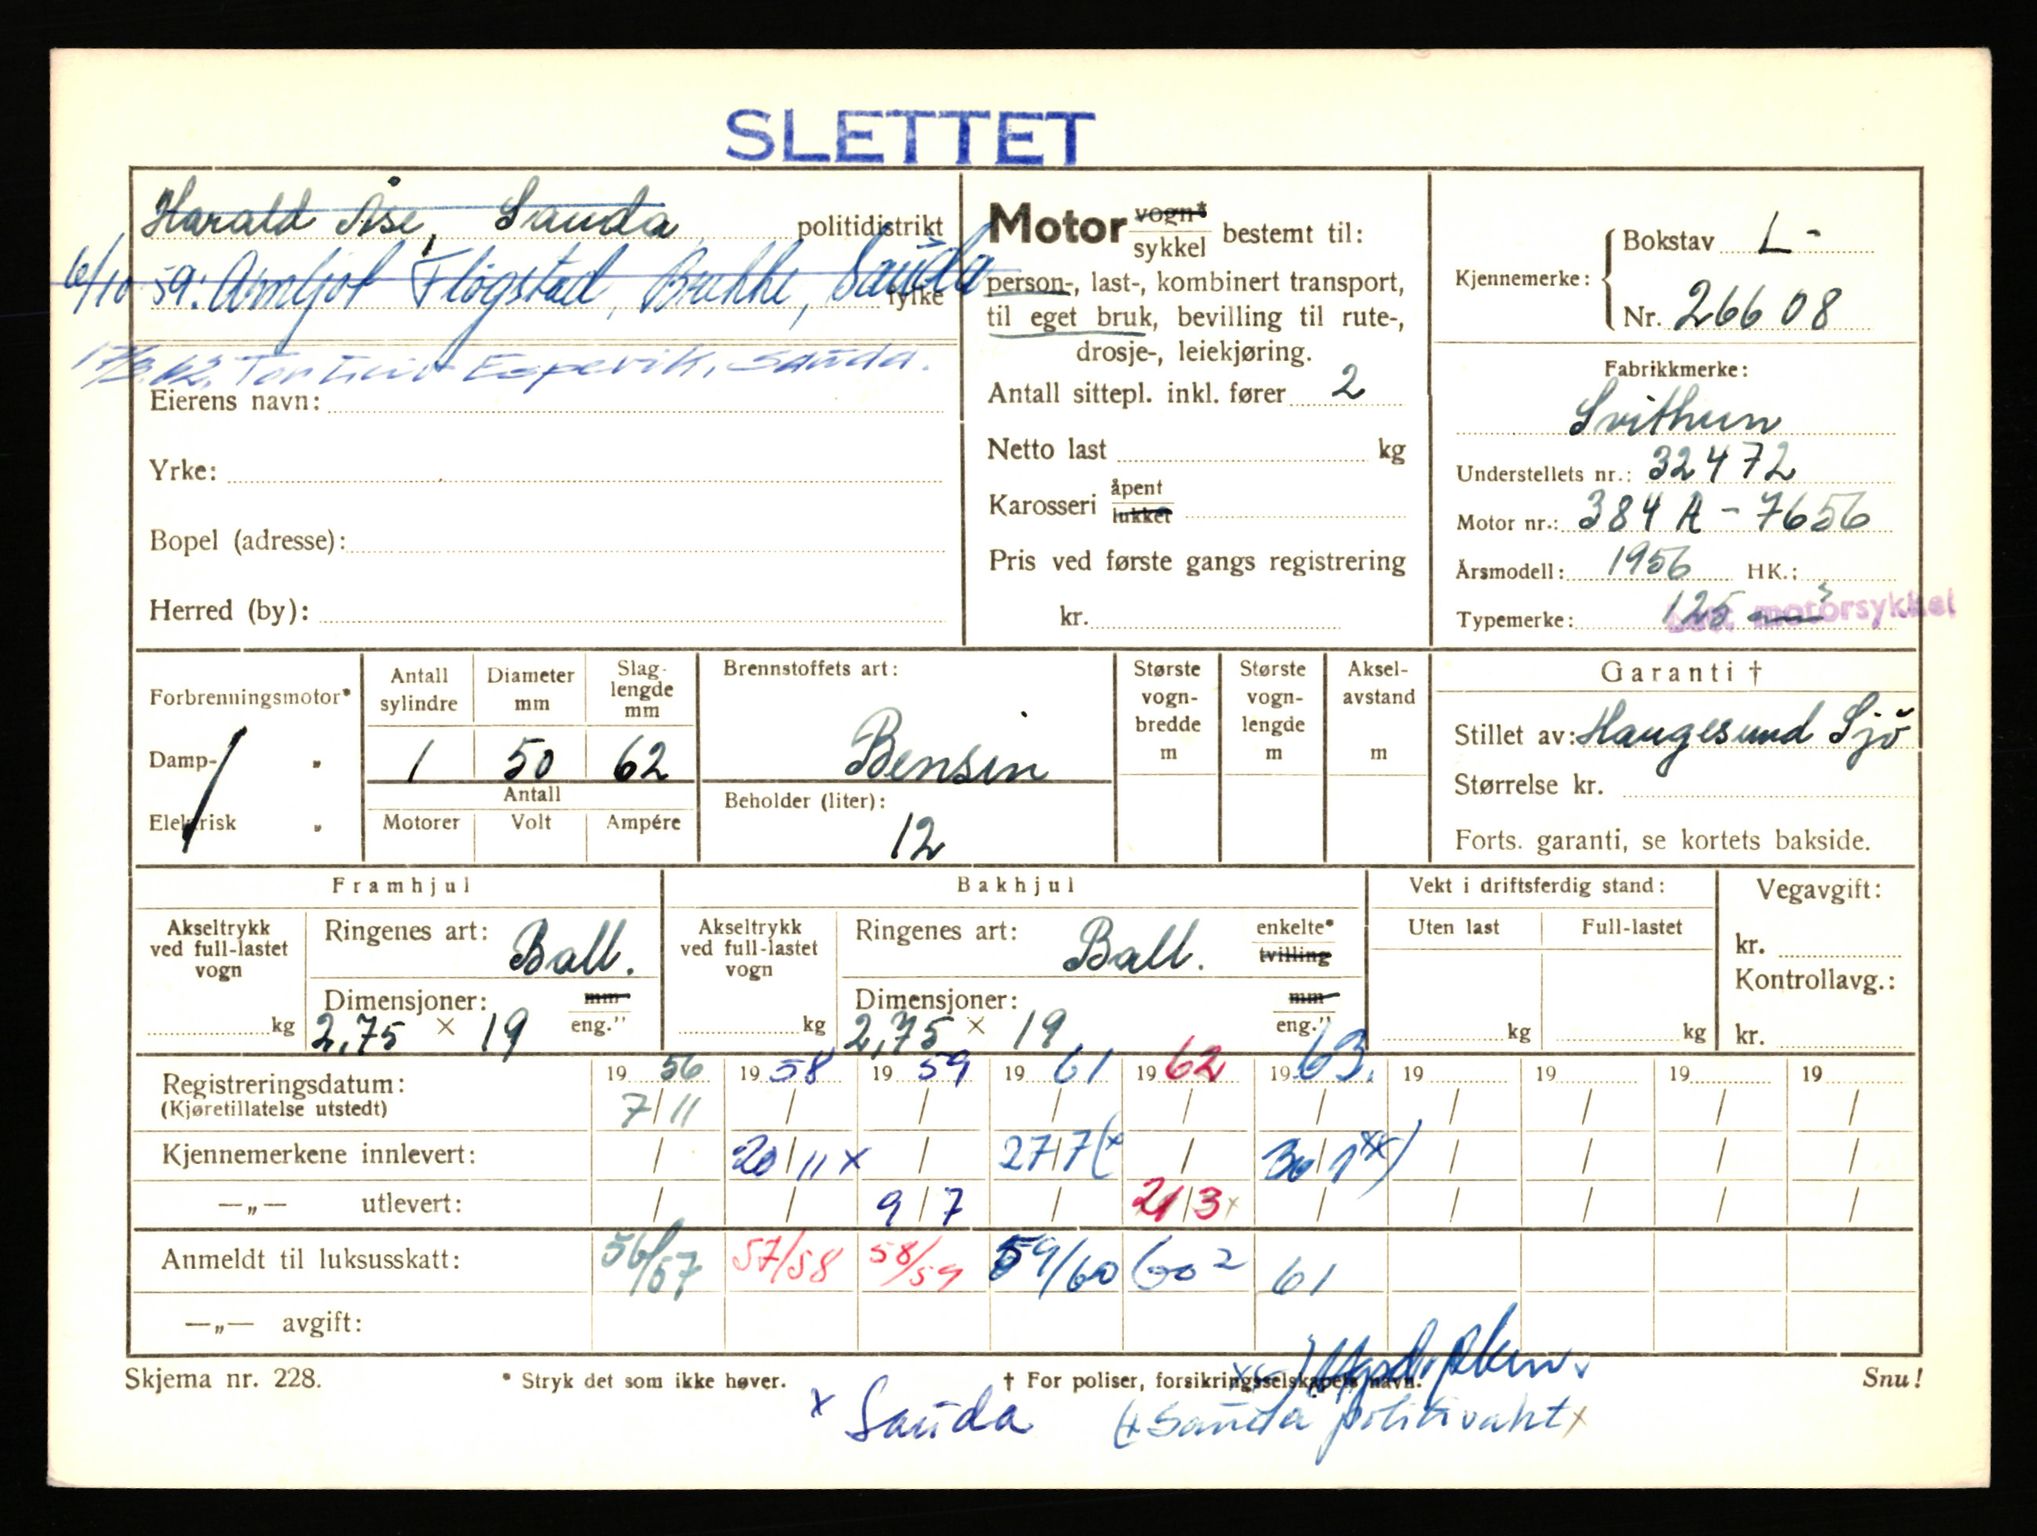 SLETTET
Harald Åse, Sauda politidistrikt
6/10 59: Arnljot Fløgstad, Brekke, Sauda fylke
Espevik, Sauda.
Eierens navn:
Yrke:
Bopel (adresse):
Herred (by):
Motor vogn* sykkel bestemt til:
person-, last-, kombinert transport,
til eget bruk, bevilling til rute-,
drosje-, leiekjøring.
Antall sittepl. inkl. fører 2
Netto last kg
Karosseri åpent lukket
Pris ved første gangs registrering
kr.
Kjennemerke: Bokstav L-
Nr. 26608
Fabrikkmerke:
Svithun
Understellets nr.: 32472
Motor nr.: 384 A - 7656
Årsmodell: 1956 HK.:
Typemerke: 125 motorsykkel
Forbrenningsmotor*
Damp- „
Elektrisk „
Antall sylindre Diameter mm Slaglengde mm
1 50 62
Antall
Motorer Volt Ampére
Brennstoffets art:
Bensin
Beholder (liter):
12
Største vognbredde m
Største vognlengde m
Akselavstand m
Garanti †
Stillet av: Haugesund Sjø
Størrelse kr.
Forts. garanti, se kortets bakside.
Framhjul
Akseltrykk ved full-lastet vogn kg
Ringenes art: Ball.
Dimensjoner: mm eng."
2,75 × 19
Bakhjul
Akseltrykk ved full-lastet vogn kg
Ringenes art: Ball. enkelte* tvilling
Dimensjoner: mm eng."
2,75 × 19
Vekt i driftsferdig stand:
Uten last Full-lastet
kg kg
Vegavgift:
kr.
Kontrollavg.:
kr.
Registreringsdatum: 19 56 19 58 19 59 19 61 19 62 19 63. 19 19 19 19
(Kjøretillatelse utstedt) 7/11 / / / / / / / / /
Kjennemerkene innlevert: / 20/11 x / 27/7 (x / 30/1 xx) / / / /
—„— utlevert: / / 9/7 / 21/3 x / / / / /
Anmeldt til luksusskatt: 56/57 57/58 58/59 59/60 60 2 61
—„— avgift:
Skjema nr. 228. * Stryk det som ikke høver. † For poliser, forsikringsselskapets navn. Snu!
x Sauda (x Sauda politivakt x